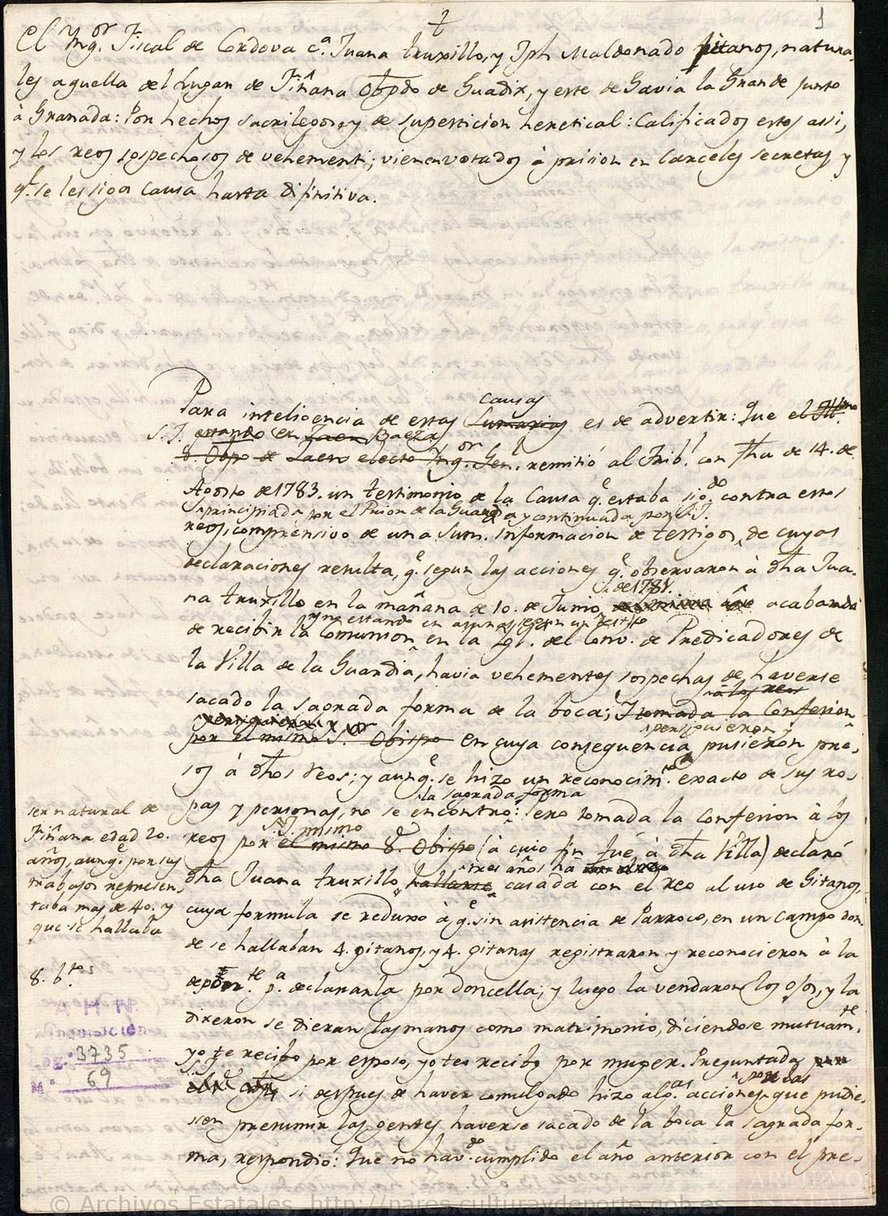 1
El Ynq.or Fiscal de Cordova c.a Juana truxillo, y Jph Maldonado gitanos, natura-
les aquella del Lugar de Fiñana Obpdo de Guadix, y este de Gavia la Grande junto
à Granada: Por hechos sacrilegos, y de supersticion heretical: Calificados estos assi,
y los reos sospechosos de vehementi; vienen votados à prision en Carceles secretas, y
q.e se les siga causa hasta difinitiva.
Para inteligencia de estas Sumarias causas es de advertir: Que el Ill.mo
S.I. estando en Jaen Baeza
S. Obpo de Jaen electo Ynq.or Gen.l remitió al Trib.l con fha de 14. de
Agosto de 1783. un testimonio de la Causa q.e estaba sig.do contra estos
principiada por el Prior de la Guardia y continuada por S.I.
reos, comprensivo de una Sum. informacion de testigos, de cuyas
declaraciones resulta, q.e segun las acciones q.e observaron à dha Jua-
na truxillo en la mañana de 10. de Junio, de 1781. acabando
de recibir la Comunion en la Ygl. del Conv. de Predicadores de
la Villa de la Guardia, havia vehementes sospechas de haverse
sacado la sagrada forma de la boca; Y tomada la Confesion a los reos
por el mismo S.or Obispo en cuya consequencia persiguieron y pusieron pre-
sos à dhos reos; y aunq.e se hizo un reconocim.to exacto de sus ro-
pas y personas, no se encontró la sagrada forma: Pero tomada la Confesion à los
reos por el mismo S.or Obispo S.I. mismo (à cuio fin fué à dha Villa) declaró
dha Juana truxillo, hallarse tres años há casada con el reo al uso de Gitanos,
cuya formula se reduxo à q.e sin asistencia de Parroco, en un campo don-
de se hallaban 4. gitanos, y 4. gitanas registraron y reconocieron à la
depon.te p.a declararla por doncella; y luego la vendaron los ojos, y la
dixeron se dieran las manos como matrimonio, diciendose mutuam.te
yo te recibo por esposo, yo te recibo por muger. Preguntada
si despues de haver comulgado hizo alg.as acciones por las que pudie-
ssen presumir las gentes haverse sacado de la boca la sagrada for-
ma, respondio: Que no hav.do cumplido el año anterior con el pre-
ser natural de
Fiñana edad 20.
años, aunq.e por sus
trabajos represen-
taba mas de 40. y
que se hallaba
8. b.tas
A H N
INQUISICIÓN
3735
N.º 69
© Archivos Estatales, http://pares.culturaydeporte.gob.es